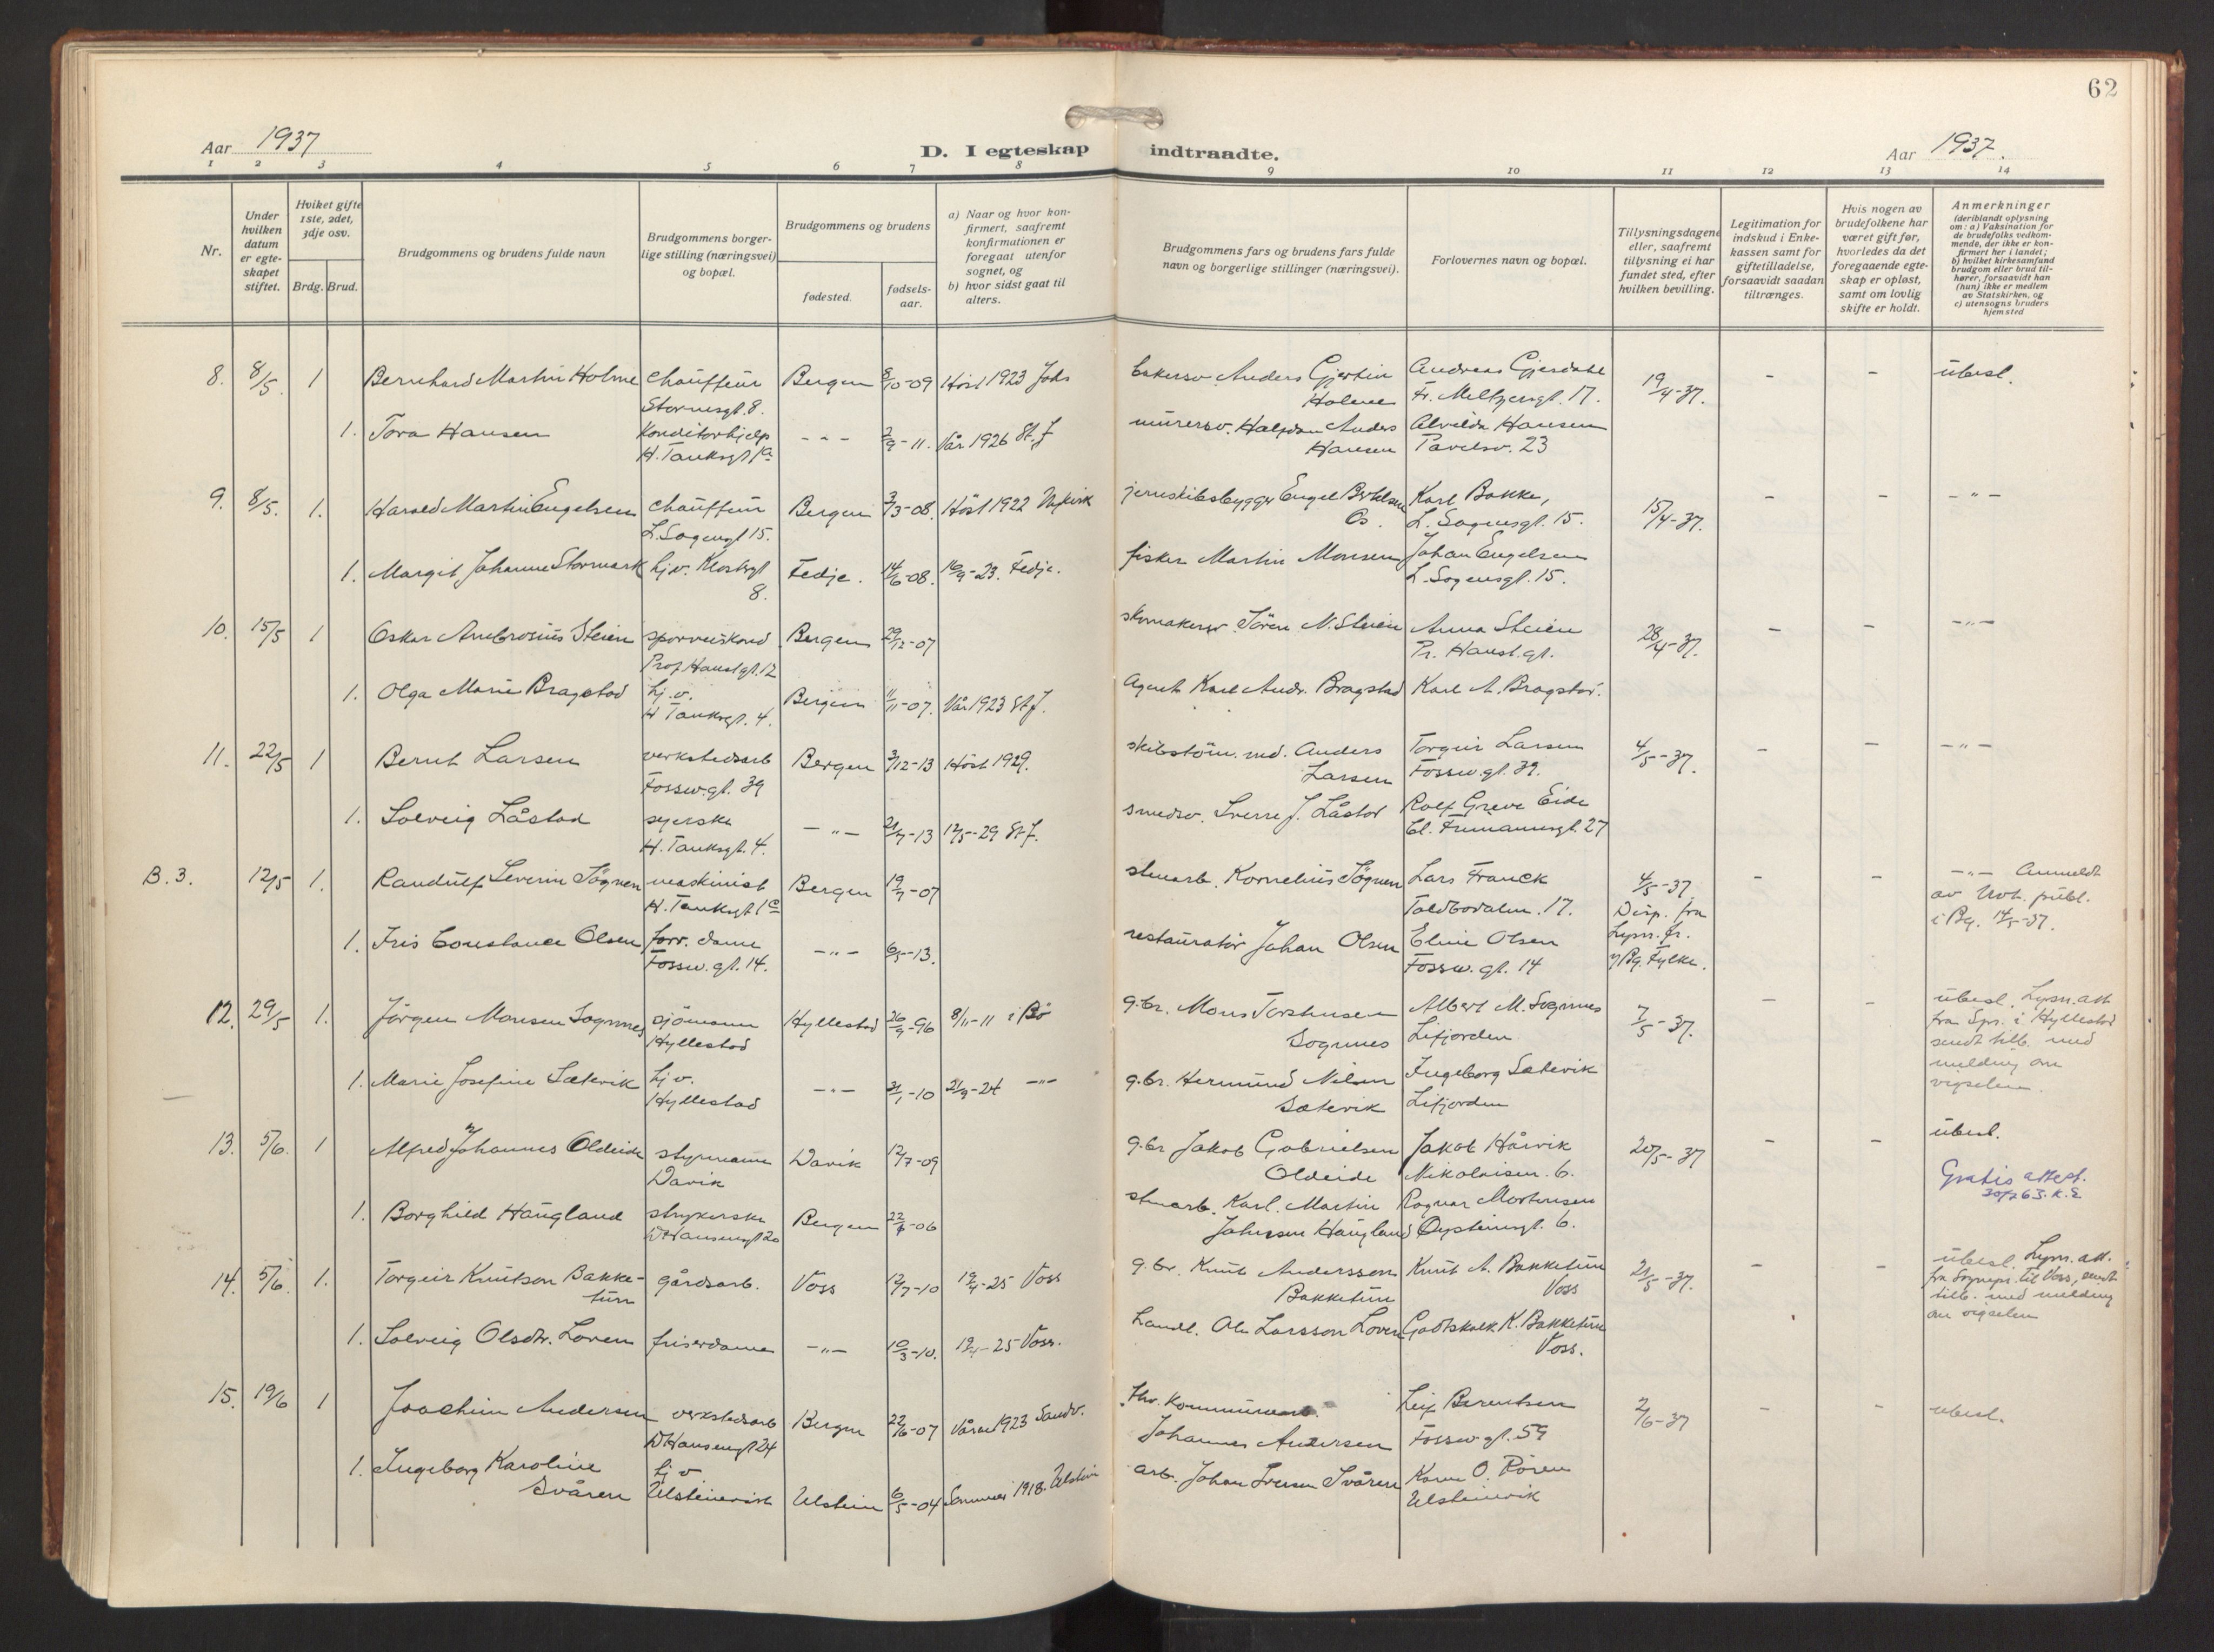 62
Aar 1937
D. I egteskap indtraadte.
Aar 1937.
1 2 3 4 5 6 7 8 9 10 11 12 13 14
Nr.
Under hvilken datum er egteskapet stiftet.
Hviket gifte 1ste, 2det, 3dje osv.
Brdg. Brud.
Brudgommens og brudens fulde navn
Brudgommens borgerlige stilling (næringsvei) og bopæl.
Brudgommens og brudens
fødested.
fødselsaar.
a) Naar og hvor konfirmert, saafremt konfirmationen er foregaat utenfor sognet, og
b) hvor sidst gaat til alters.
Brudgommens fars og brudens fars fulde navn og borgerlige stillinger (næringsvei).
Forlovernes navn og bopæl.
Tillysningsdagene eller, saafremt tillysning ei har fundet sted, efter hvilken bevilling.
Legitimation for indskud i Enkekassen samt for giftetilladelse, forsaavidt saadan tiltrænges.
Hvis nogen av brudefolkene har været gift før, hvorledes da det foregaaende egteskap er opløst, samt om lovlig skifte er holdt.
Anmerkninger
(deriblandt oplysning om: a) Vaksination for de brudefolks vedkommende, der ikke er konfirmert her i landet;
b) hvilket kirkesamfund brudgom eller brud tilhører, forsaavidt han (hun) ikke er medlem av Statskirken, og
c) utensogns bruders hjemsted
8. 8/5. 1 Bernhard Martin Holme chauffeur Bergen 8/10-09 Höst 1923 Johs Anders Gjertin Andreas Gjerdahl 19/4-37. - - ubesl.
Stormsgt. 8. Holme Fr. Meltzersgt. 17.
1. Tora Hansen Konditorhjelp - " - 2/9-11. Vår 1926 St. J murersv. Halfdan Anders Alvilda Hansen
H. Tanksgt 1a Hansen Tavelsv. 23
9. 8/5. 1. Harald Martin Engelsen chauffeur Bergen 3/3-08. Höst 1922 Nykirk jernskibsbygger Engel Karl Bakke, 15/4-37. - - - " -
L. Sagensgt 15. Os. L. Sagensgt. 15.
1. Margit Johanne Stormark hj. v. Klostergt Fedje. 14/6-08. 16/9-23. Fedje. fisker Martin Monsen Johan Engelsen
8. L. Sagensgt. 15.
10. 15/5 1 Oskar Ambrosius Steien sporveiskond Bergen 29/12-07 skomakersv. Sören N. Steien Anna Steien 28/4-37. - - - " -
Prof Hanstgt. 12 Pr. Hanst. gt.
1. Olga Marie Bragstad hj. v. Bergen 11/11-07. Vår 1923 St J. Agent Karl Andr. Bragstad Karl A. Bragstad.
H Tanksgt. 4.
11. 22/5 1 Bernt Larsen verkstedsarb Bergen 3/12-13 Höst 1929. skibstöm. md. Anders Torgeir Larsen 4/5-37. - - - " -
Fossw. gt. 39 Larsen Fossw. gt. 39.
1. Solveig Låstad syerske - " - 21/7-13 12/5-29 St J. smedsv. Sverre J. Låstad Rolf Greve Eide
H. Tanksgt. 4. Cl. Frimannsgt. 27
B. 3. 12/5 1. Randulf Severin Sögnen maskinist Bergen 19/7-07 stuarb. Kornelius Sögnen Lars Franck 4/5-37 - - - " - Anmeldt
H. Tanksgt 1c Toldbodalm. 17. Disp. fra av Utv. publ.
1. Iris Constance Olsen forr. dame - " - 6/5-13. restauratör Johan Olsen Eline Olsen Lysn. fr. i Bg. 14/5-37.
Fossw. gt. 14. Fossw. gt. 14 Bg. Fylke.
12. 29/5 1. Jörgen Monsen Sognnes sjömann Hyllestad 26/9-96 8/11-11 i Bö g. br. Mons Torstensen Albert M. Sognnes 7/5-37. - ubesl. Lysn. att
Hyllestad Sognnes Lifjorden fra Spr. i Hyllestad
1. Marie Josefine Sætevik hj v. - " - 31/1-10 21/9-24 - " - g. br. Hermund Nilsen Ingeborg Sætevik sendt tilb. med
Hyllestad Sætevik Lifjorden melding om vigselen.
13. 5/6. 1 Alfred Johannes Oldeide styrmann Davik 12/7-09 g. br Jakob Gabrielsen Jakob Hårvik 20/5-37 - - ubesl.
Davik Oldeide Nikolaisen. 6. Gratis attest.
1. Borghild Haugland strykerske Bergen 22/1-06 stuarb. Karl. Martin Ragnar Mortensen 30/7 63. K. E
D. Hansensgt 20 Johnsen Haugland Öysteinsgt. 6.
14. 5/6. 1. Torgeir Knutson Bakke- gårdsarb. Voss 12/7-10 19/4-25 Voss g. br. Knut Andersson Knut A. Bakketun 21/5-37. - - ubesl. Lysn. att.
tun Bakketun Voss fra Sognepr. til Voss, sendt
1. Solveig Olsdtr. Loven friserdame - " - 10/3-10. 19/4-25 Voss. handl. Ole Larsson Loven Godtskalk K. Bakketun tilb. med melding
Voss. om vigselen
15. 19/6 1 Joachim Andersen verkstedsarb Bergen 22/6-07 Våren 1923 Sandv. Leif Berentsen 2/6-37 - - ubesl.
D. Hansensgt 24 Johannes Andersen Fossw. gt. 59
1. Ingeborg Karoline hj v Ulstein 6/5-04 Sommer 1918. Ulstein arb. Johan Iversen Svåren Karen O. Rören
Svåren Ulsteinvik Ulsteinvik